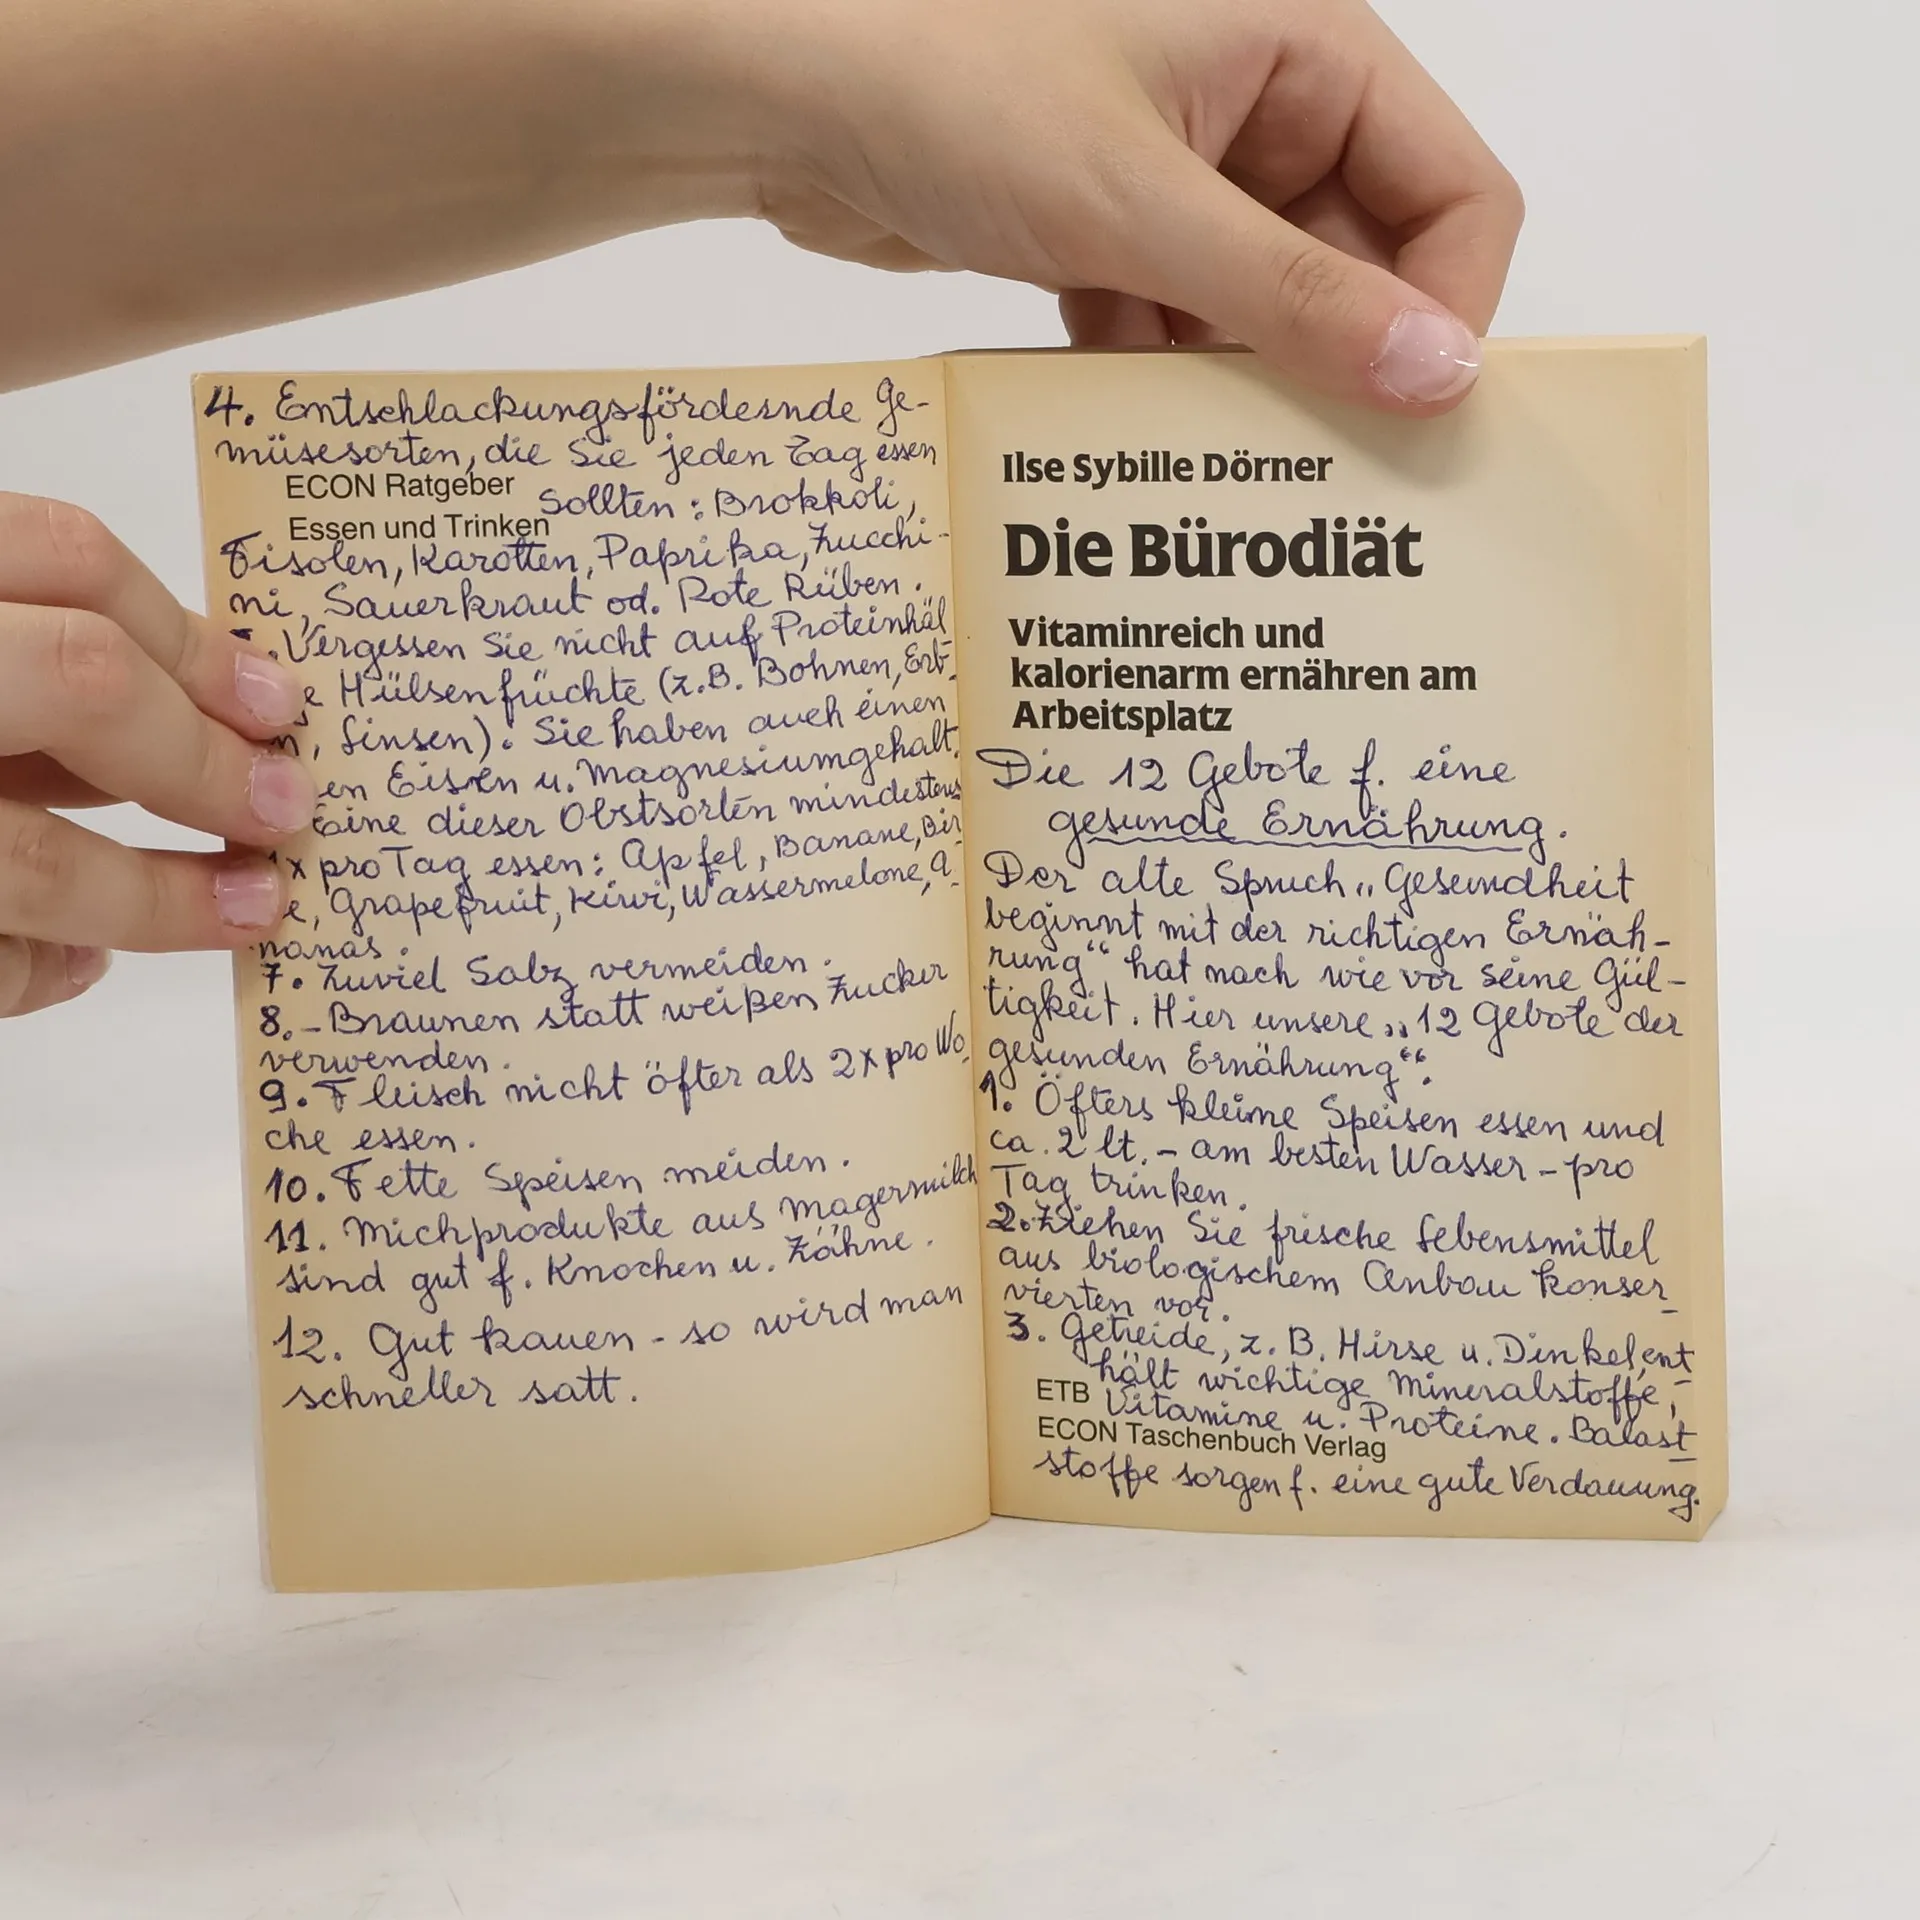 4. Entschlackungsfördernde Ge-
müsesorten, die Sie jeden Tag essen
ECON Ratgeber
sollten: Brokkoli,
Essen und Trinken
Fisolen, Karotten, Paprika, Zucchi-
ni, Sauerkraut od. Rote Rüben.
. Vergessen Sie nicht auf Proteinhäl
e Hülsenfrüchte (z.B. Bohnen, Erb-
n, Linsen). Sie haben auch einen
en Eisen u. Magnesiumgehalt.
Eine dieser Obstsorten mindestens
1x pro Tag essen: Apfel, Banane, Bir
e, Grapefruit, Kiwi, Wassermelone, A-
nanas.
7. Zuviel Salz vermeiden.
8. - Braunen statt weißen Zucker
verwenden.
9. Fleisch nicht öfter als 2x pro Wo-
che essen.
10. Fette Speisen meiden.
11. Michprodukte aus Magermilch
sind gut f. Knochen u. Zähne.
12. Gut kauen - so wird man
schneller satt.
Ilse Sybille Dörner
Die Bürodiät
Vitaminreich und
kalorienarm ernähren am
Arbeitsplatz
Die 12 Gebote f. eine
gesunde Ernährung.
Der alte Spruch „Gesundheit
beginnt mit der richtigen Ernäh-
rung“ hat nach wie vor seine Gül-
tigkeit. Hier unsere „12 Gebote der
gesunden Ernährung“.
1. Öfters kleine Speisen essen und
ca. 2 lt. - am besten Wasser - pro
Tag trinken.
2. Ziehen Sie frische Lebensmittel
aus biologischem Anbau konser-
vierten vor.
3. Getreide, z. B. Hirse u. Dinkel, ent-
hält wichtige Mineralstoffe,
ETB Vitamine u. Proteine. Balast-
ECON Taschenbuch Verlag
stoffe sorgen f. eine gute Verdauung.